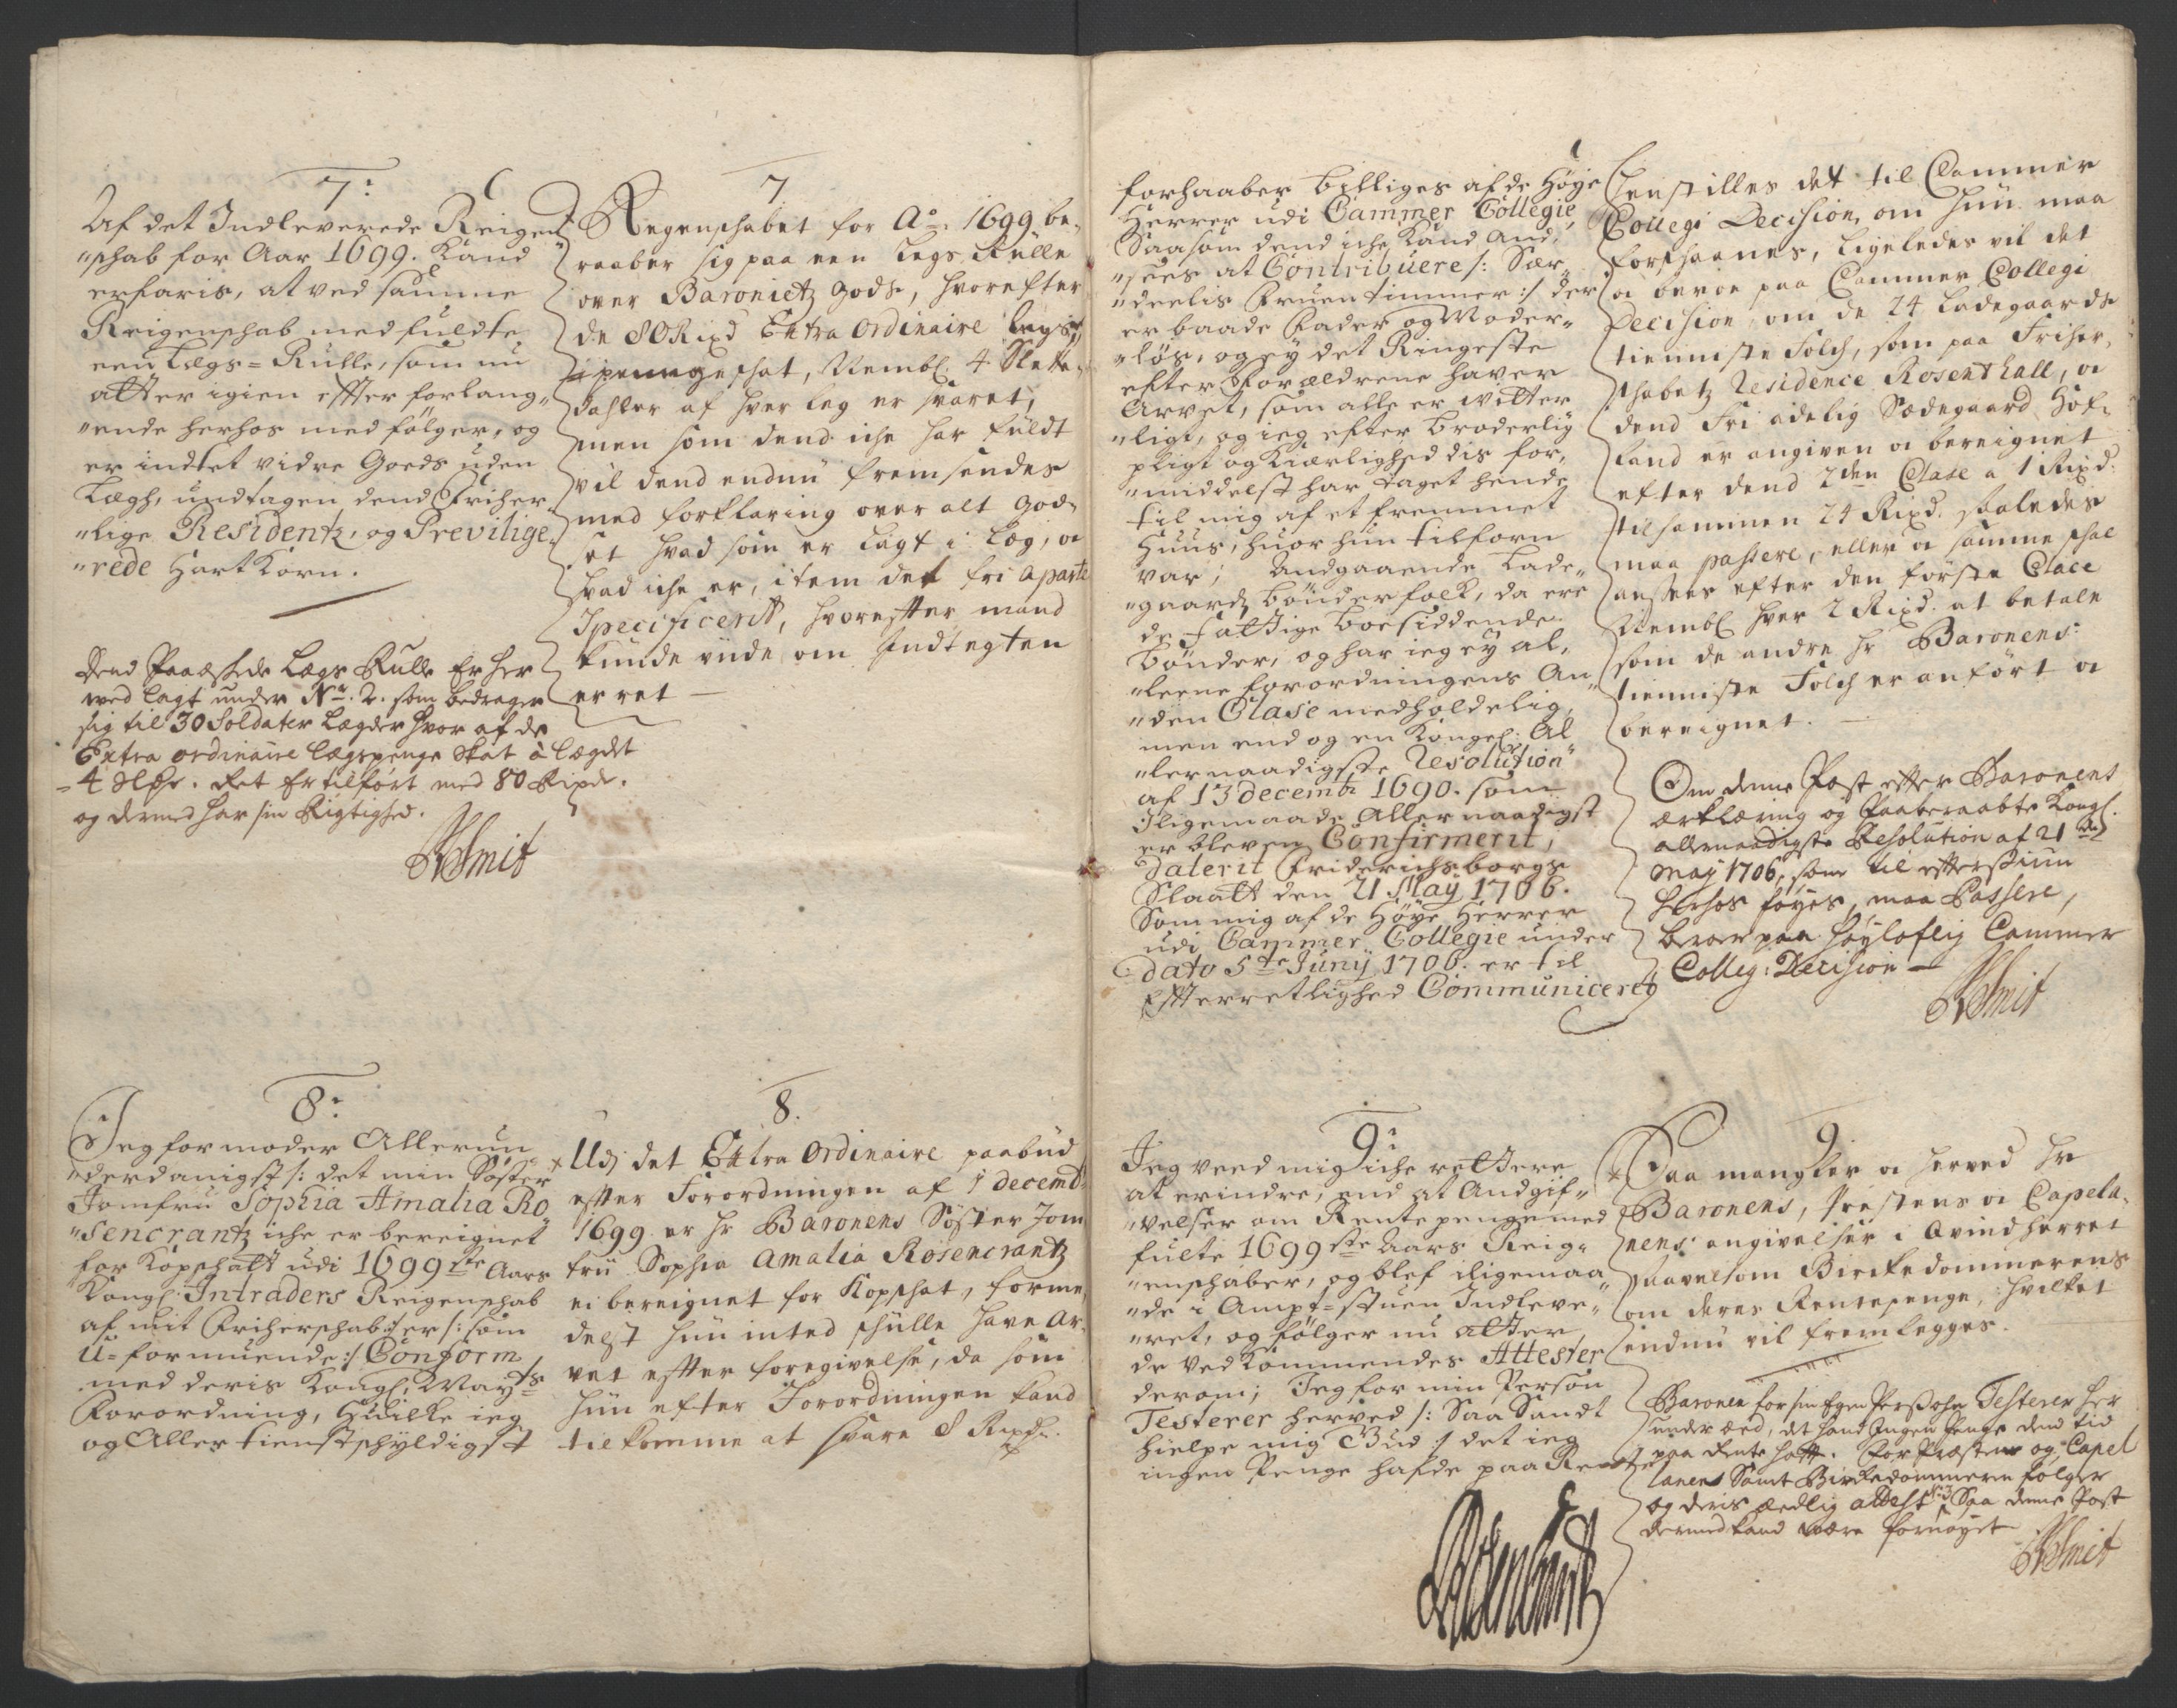 7:
Af det Indleverede Reigen
"schab for Aar 1699. Kand
erfaris, at ved samme
Reigenschab med fuldte
een Lægs-Rulle, som nu
atter igien effter forlang„
"ende herhos med følger, og
er indtet vidre Goeds uden
Lægh, undtagen dend Friher„
"lige Residentz, og Previlige„
"rede Hart Korn.
Dend Paaæskede Lægs Rulle Er her
wed lagt under Nr. 2. som bedrager
sig til 30 Soldater Lægder hvor af de
Extra ordinaire Lægspenge Skat à Lægdet
4 Sldr. Ret Er tilført med 80 Rixdr.
og dermed har sin Rigtighed.
Smit
7
Regenschabet for Ao. 1699 be„
raaber sig paa een Legs Rulle
over Baronietz Gods, hvorefter
de 80 Rixd Extra Ordinaire Legs
penge schat, Nembl. 4 Slette„
daler af hver leg er svaret,
men som dend iche har fuldt
vil dend endnu fremsendes
med forklaring over alt God„
set hvad som er lagt i Læg, oc
hvad iche er, item det fri aparte
Specificerit, hvoreffter mand
kunde vide om Indtegten
er ret
8:
Jeg formoder Allerun
"derdanigst /: det min Søster
Jomfru Sophia Amalia Ro
"sencrantz iche er bereignet
for Kopschatt udi 1699ste Aars
Kongl. Intraders Reigenschab
af mit Friherschab :/ er /: som
u=formuende :/ Conform
med deris Kongl. Mayts
Forordning, Huilke ieg
og Aller tienstschyldigst
8.
Udj det Extra Ordinaire paabud
effter Forordningen af 1 Decemb:
1699 er hr Baronens Søster Jom
fru Sophia Amalia Rosencrantz
ei bereignet for Kopschat, forme„
delst hun inted schulle have Ar„
vet effter foregivelse, da som
hun efter Forordningen kand
tilkomme at svare 8 Rixdr.
forhaaber billiges af de Høye
Herrer udi Cammer Collegie,
Saasom dend iche Kand And„
"sees at Contribuere /: Sær„
"deelis Fruentimmer :/ der
er baade Fader og Moder„
"løs, og ey det Ringeste
efter Forældrene haver
Arvet, som alle er witter
"ligt, og ieg efter Broderlig
pligt og Kiærlighed dis for„
"middelst har taget hende
til mig af et fremmet
Huus, huor hun tilforn
var; Andgaaende Lade„
"gaards Bønderfolk, da ere
de fattige boesiddende
Bønder, og har ieg ey al„
"leene forordningens An
"den Clase medholdelig,
men end og en Kongel: Al
"lernaadigste Resolution
af 13 decembr 1690. som
Iligemaade Allernaadigst
er bleven Confirmerit,
Daterit Friderichsborgs
Slaatt den 21 May 1706.
Som mig af de Høye Herrer
udi Cammer Collegie under
dato 5te Juny 1706. er til
Effterretlighed Communiceret
Henstilles det til Cammer
Collegi Decision, om hun maa
forschaanes, ligeledes vil det
oc beroe paa Cammer Collegi
Decision om de 24 Ladegaards
tienniste Folch, som paa Friher„
schabetz Residence Rosenthall, oc
dend Fri adelig Sædegaard Hof„
land er angiven oc bereignet
efter dend 2den Clase a 1 Rixd.
tilsammen 24 Rixd. saaledes
maa passere, eller oc samme schal
ansees efter den første Clace
Nembl hver 2 Rixd. at betale
som de andre hr Baronens
tienniste Folch er anført oc
bereignet.
Om denne Post effter Baronens
erklæring og Paaberaabte Kongl.
allernaadigste Resolution af 21de
May 1706, som til effterSiun
herhos føyes, maa Passere,
beroer paa Høyloflig Cammer
Colleg: Decision
Smit
9:
Jeg veed mig iche rettere
at erindre, end at Andgif„
"velser om Rentepenge med
fulte 1699ste Aars Reig„
"enschaber, og blef iligemaa
"de i Ampt=stuen Indleve„
"ret, og følger nu atter
de ved Kommendes Attester
derom; Jeg for min Person
Testerer herved /: Saa Sandt
hielpe mig Gud :/ det ieg
ingen Penge hafde paa Rente
9
Saa mangler oc herved hr
Baronens, Prestens oc Capela„
nens angivelser i Qvindherret
saavelsom Birckedommerens
om deres Rentepenge, hvilket
endnu vil fremlegges.
Baronen for sin Egen Persohn Testerer her
under æed, det hand Ingen Penge dend tid
paa Rente hafft. For Præsten og Capel
lanen Samt Birckedommeren følger
og deris ædlig attest N: 3 Saa denne Post
dermed kand være fornøyet
Smit